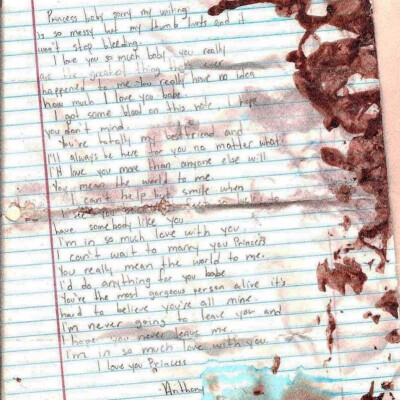 Princess baby sorry my writing
is so messy but my thumb hurts and it
won't stop bleeding.
I love you so much baby you really
are the greatest thing that ever
happened to me. You really have no idea
how much I love you babe.
I got some blood on this note I hope
you don't mind.
You're totally my bestfriend and
I'll always be here for you no matter what.
I'll love you more than anyone else will
You mean the world to me.
I can't help but smile when
I see you
have somebody like you.
I'm in so much love with you.
I can't wait to marry you Princess
You really mean the world to me.
I'd do anything for you babe
You're the most gorgeous person alive it's
hard to believe you're all mine.
I'm never going to leave you and
I hope you never leave me.
I'm in so much love with you.
I love you Princess
-Anthony